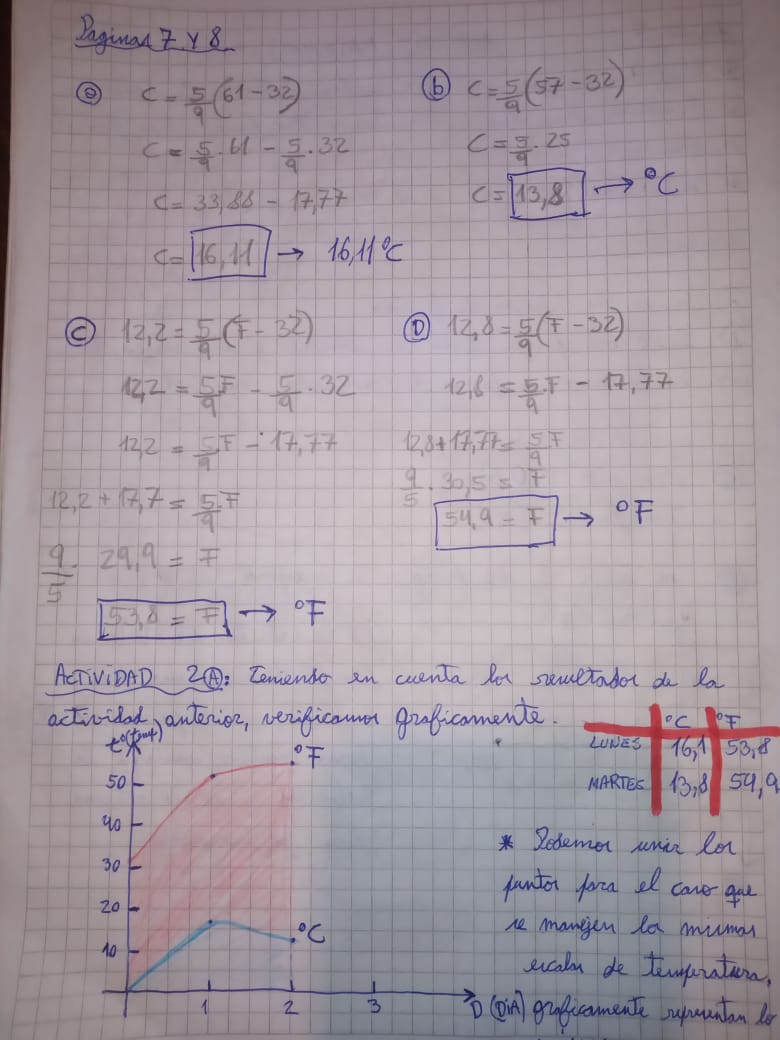 Paginas 7 Y 8
ⓐ C = 5/9 (61 - 32)
C = 5/9 . 61 - 5/9 . 32
C = 33,88 - 17,77
C = 16,11 → 16,11°C
ⓑ C = 5/9 (57 - 32)
C = 5/9 . 25
C = 13,8 → °C
ⓒ 12,2 = 5/9 (F - 32)
12,2 = 5/9 F - 5/9 . 32
12,2 = 5/9 F - 17,77
12,2 + 17,7 = 5/9 F
9/5 . 29,9 = F
53,8 = F → °F
Ⓓ 12,8 = 5/9 (F - 32)
12,8 = 5/9 F - 17,77
12,8 + 17,77 = 5/9 F
9/5 . 30,5 = F
54,9 = F → °F
ACTIVIDAD 2Ⓐ: Teniendo en cuenta los resultados de la
actividad anterior, verificamos graficamente.
°C °F
LUNES 16,1 53,8
MARTES 13,8 54,9
°F
50
40
30
20
10
°C
1 2 3 D (DIA)
* Podemos unir los
puntos para el caso que
se manejen las mismas
escalas de temperatura,
graficamente representan lo